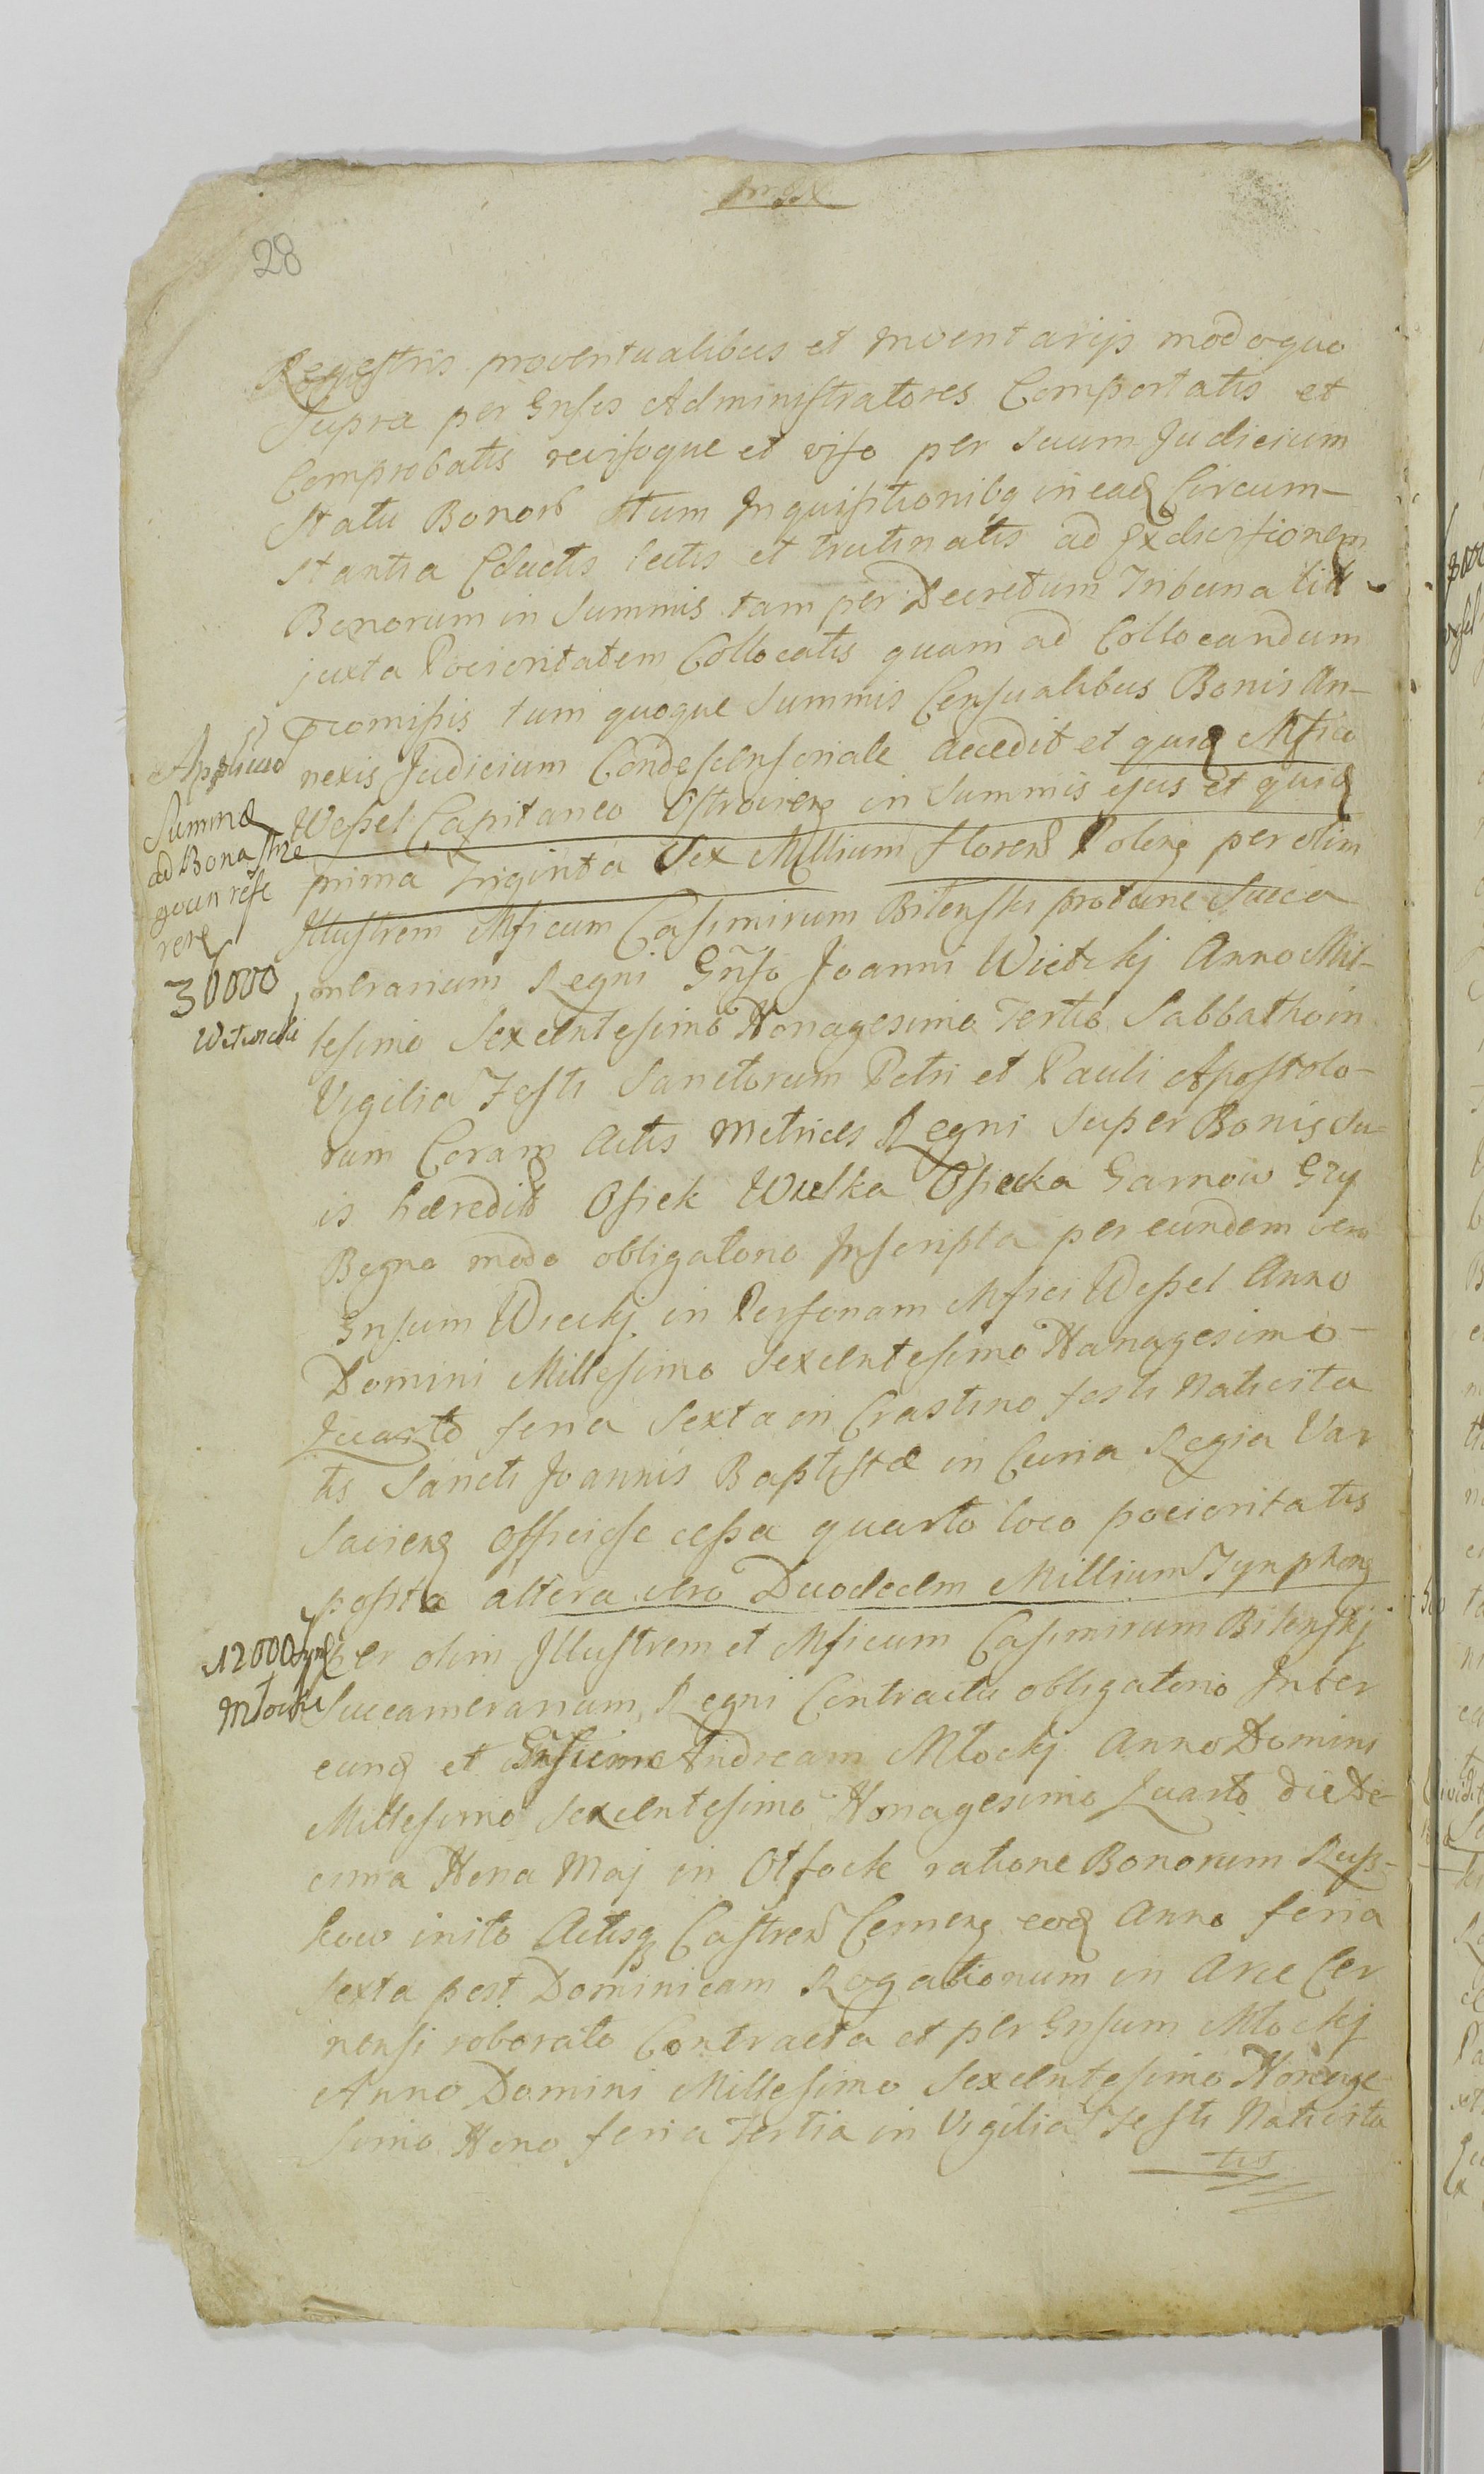 28
Regestris proventualibus et Inventarijs modoquo
supra per Gnsos Administratores Comportatis et
Comprobatis revisoque et viso per suum Judicium
statu Bonor Itum Inquisitionibq in eadq Circum-
stantia Eductis lectis et trutinatis ad Exdivisionem
Bonorum in Summis tam per Decretum Tribunalit
juxta Pocioritatem Collocatis quam ad Collocandum
promissis tum quoque Summis Censualibus Bonis An-
nexis Judicium Condescensoriale accedit et quidq Mfico
Wessel Capitaneo Ostroviens in Summis ejus et quidq
prima Triginta Sex Millium floren Polong per olim
Illustrem Mficum Casimirum Bilenski protunc Succa
merarium Regni Gnso Joanni Wieckj Anno Mil-
lesimo Sexcentesimo Nonagesimo Tertio Sabbatho in
Vigilia Festi Sanctorum Petri et Pauli Apostolo-
rum Coram Actis Metrices Regni super Bonis Su-
is hæredit Osiek Wielka Osiecka Garnow Gry
Bogno modo obligatorio Inscripta per eundem vero
Gnsum Wieckj in Personam Mfici Wessel Anno
Domini Millesimo Sexcentesimo Nonagesimo-
Quarto feria Sexta in Crastino festi Nativita
tis Sancti Joannis Baptistæ in Curia Regia Var
savieng Officiose cessa quarto loco pocioritatis
posita altera vero Duodecem Millium Tynphong
per olim Illustrem et Mficum Casimirum Bilenskj
Succamerarium Regni Contractu obligatorio Inter
eundq et Gnsum Andream Młockj Anno Domini
Millesimo Sexcentesimo Nonagesimo Quarto die De-
cima Nona Maj in Otfock ratione Bonorum Rusz-
kow inito Actisq Castren Cerneng eodq Anno feria
Sexta post Dominicam Rogationum in Arce Cer
nensi roborato Contracta et per Gnsum Młockj
Anno Domini Millesimo Sexcentesimo Nonage
simo Nono feria Tertia in Vigilia Festi Nativita
tis
Applicuo
Summa
ad Bona
rere
30000
12000 tynf
Młocki